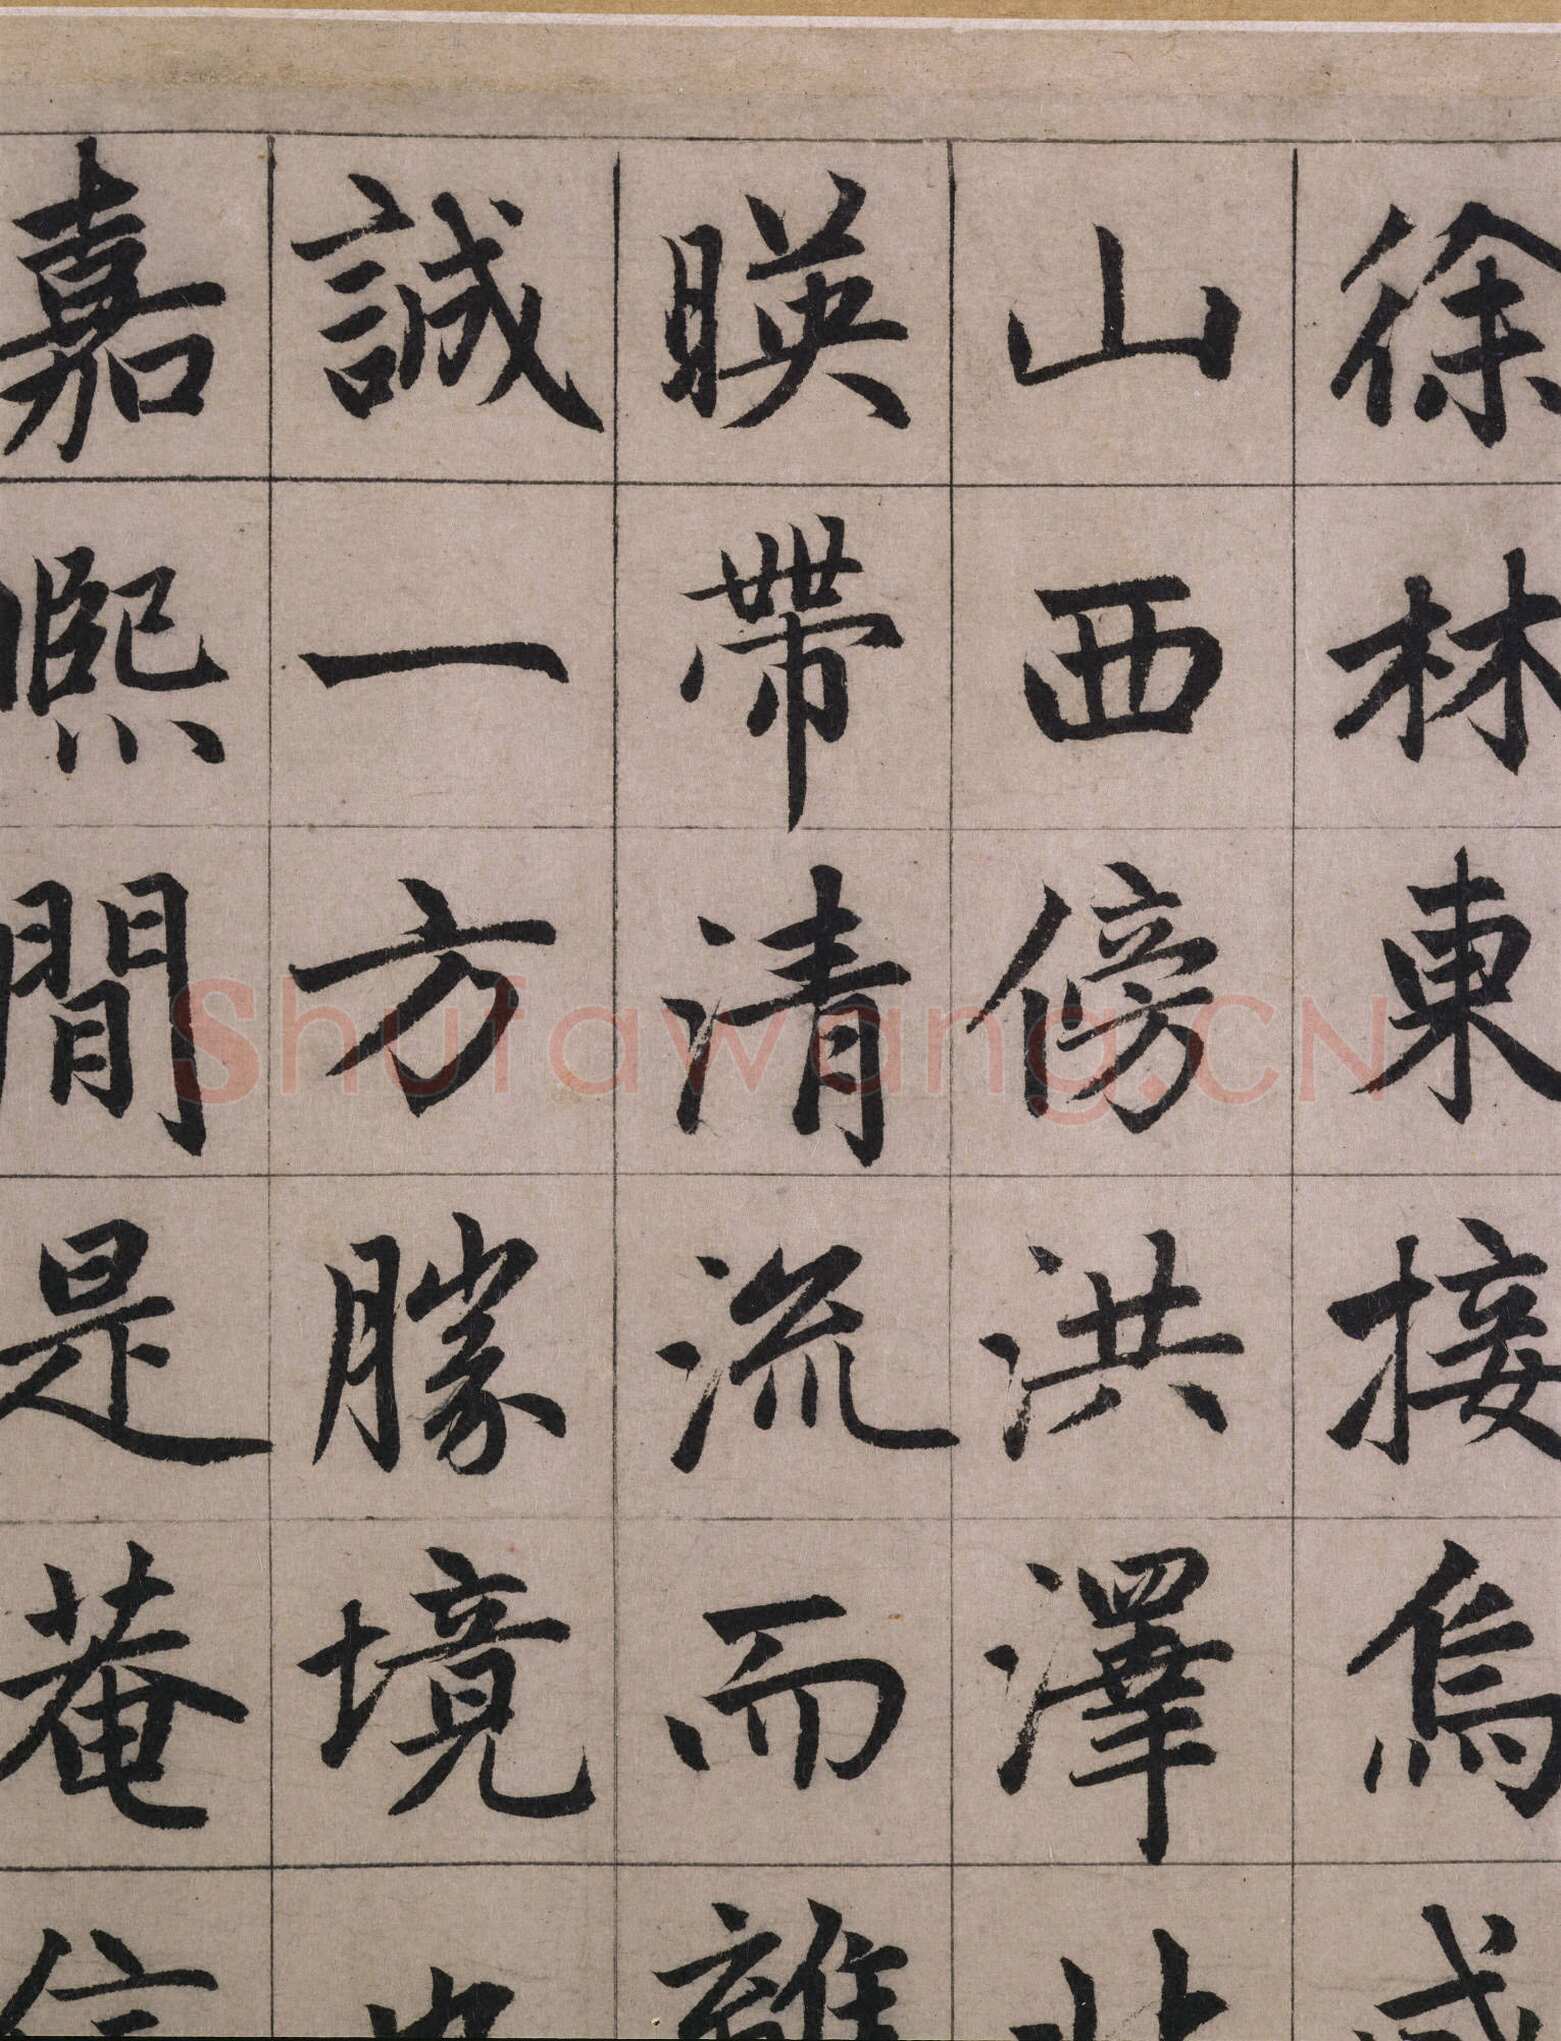 徐林東接烏
山西傍洪澤北
暎帶清流而離
誠一方勝境也
嘉熈間是菴信
Shufawang.CN